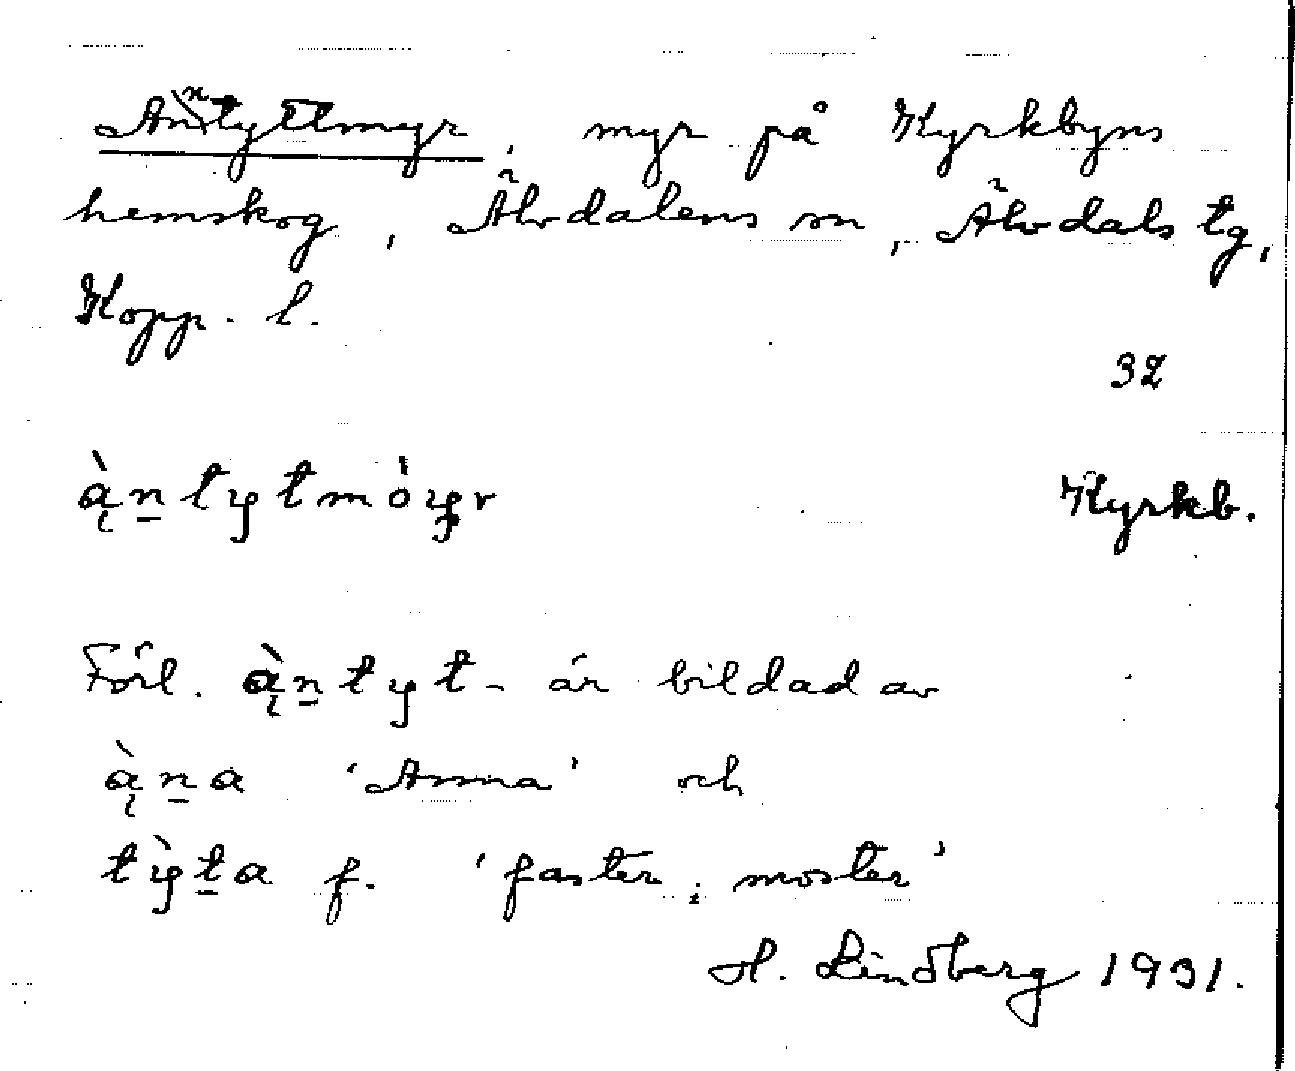 Anntyttmyr, myr på Kyrkbyns
hemskog, Älvdalens sn, Älvdals tg,
Kopp. l.
32
ą̀n̲tytmòy̨r Kyrkb.
Förl. ą̀n̲tyt- är bildad av
ą̀n̲a 'Anna' och
tỳt̲a f. 'faster; moster'
H. Lindberg 1931.